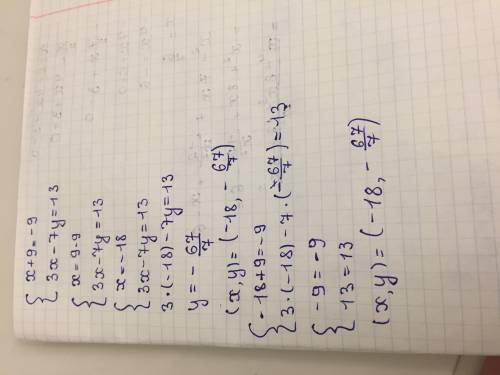 { x+9=-9
3x-7y=13
{ x=-9-9
3x-7y=13
{ x=-18
3x-7y=13
3·(-18)-7y=13
y=-67/7
(x,y)=(-18,-67/7)
{ -18+9=-9
3·(-18)-7·(-67/7)=13
{ -9=-9
13=13
(x,y)=(-18,-67/7)